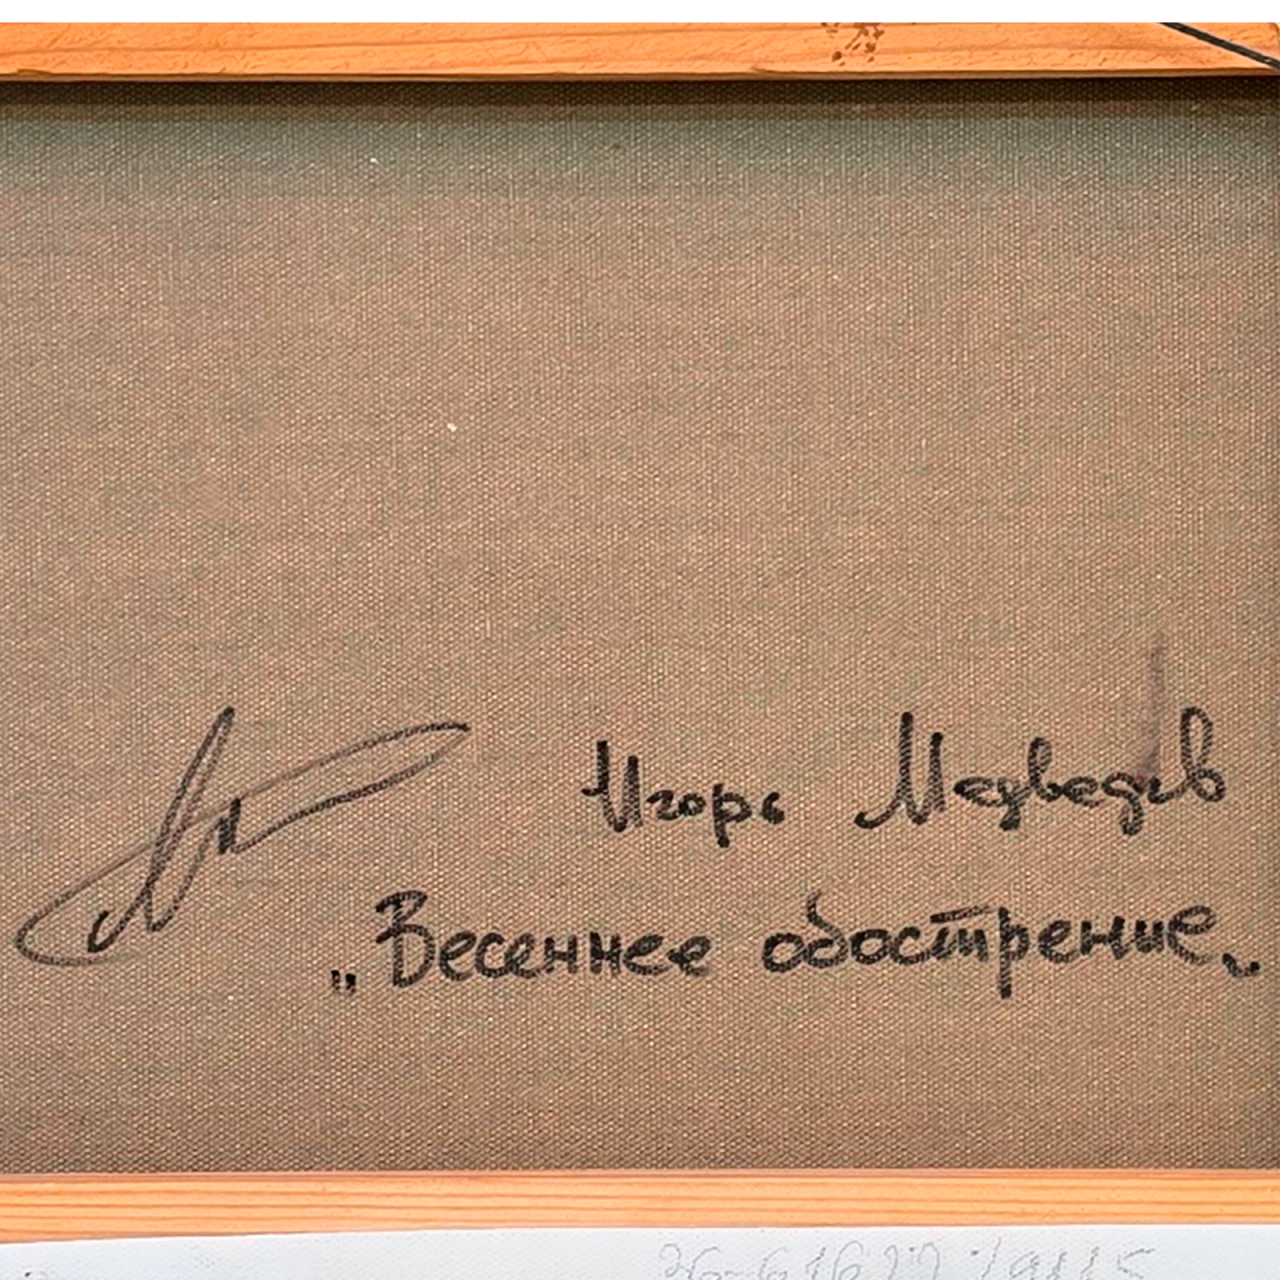 Игорь Медведев
„Весеннее обострение„